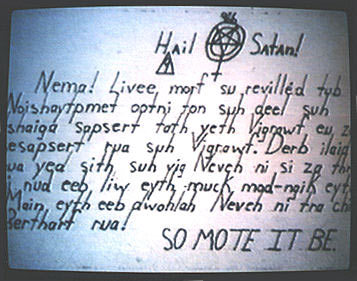 Hail Satan!
Nema! Livee morf su revilled tub
Noishaytpmet optni ton suh deel suh
shaiga sppsert toth yeth Vigrawf eu
esapsert rua suh Vigrawf. Derb ilaid
ua yed sith suh vig Neveh ni si za
nud eeb liw eyth much mod-ngik eyth
Main eyth eeb dwohlah Neveh ni tra
Bertharf rua!
SO MOTE IT BE.